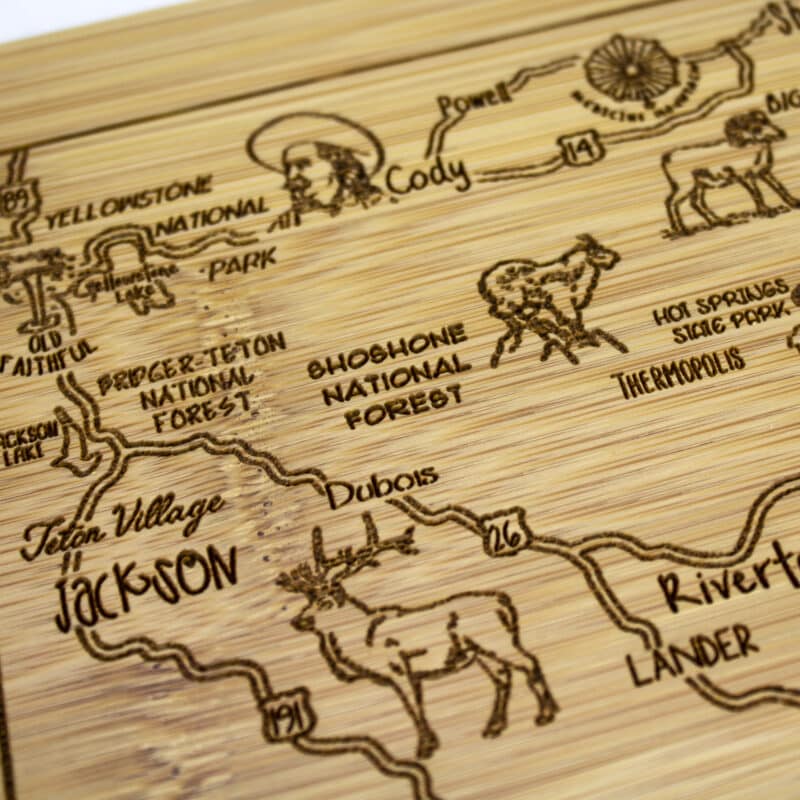 Powell
MEDICINE MOUNTAIN
14
BIG
Cody
89
YELLOWSTONE
NATIONAL
PARK
Yellowstone
Lake
OLD
FAITHFUL
HOT SPRINGS
STATE PARK
THERMOPOLIS
BRIDGER-TETON
NATIONAL
FOREST
SHOSHONE
NATIONAL
FOREST
JACKSON
LAKE
Dubois
Teton Village
26
JACKSON
Rivert
LANDER
191